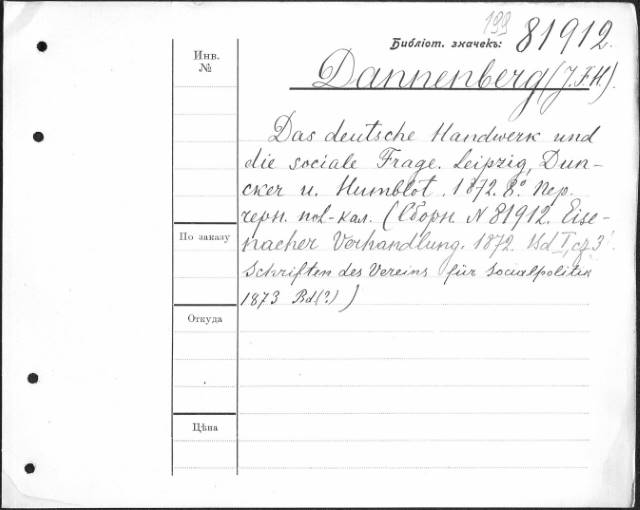 199
Библіот. значекъ: 81912.
Инв.
№
Dannenberg (J. F. H.).
Das deutsche Handwerk und
die sociale Frage. Leipzig, Dun-
cker u. Humblot. 1872. 8º. Пер.
черн. пол-кал. (Сборн. № 81912. Eise-
По заказу
nacher Verhandlung. 1872. Bd I,
Schriften des Vereins für Socialpolitik
1873 Bd(?) )
Откуда
Цѣна